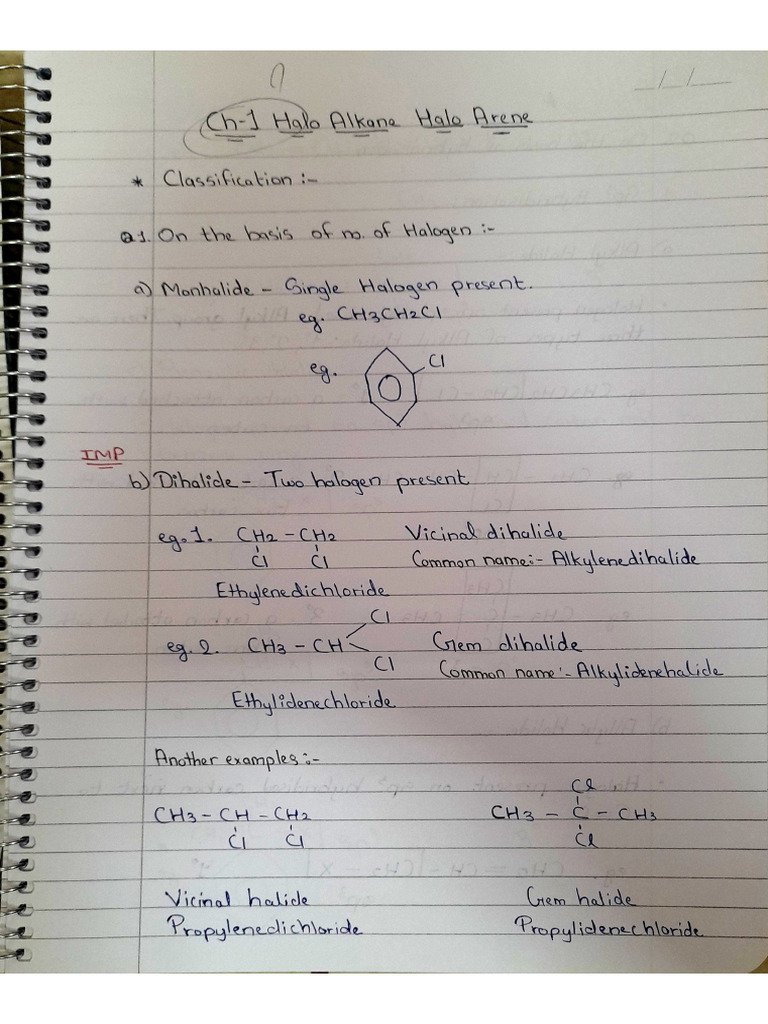 Ch-1 Halo Alkane Halo Arene
* Classification :-
Q1. On the basis of no. of Halogen :-
a) Monhalide - Single Halogen present.
eg. CH3CH2Cl
eg. Cl
IMP
b) Dihalide - Two halogen present
eg.1. CH2 - CH2 Vicinal dihalide
Cl Cl Common name:- Alkylenedihalide
Ethylenedichloride
Cl
eg. 2. CH3 - CH Gem dihalide
Cl Common name:- Alkylidenehalide
Ethylidenechloride
Another examples :-
Cl
CH3 - CH - CH2 CH3 - C - CH3
Cl Cl Cl
Vicinal halide Gem halide
Propylenedichloride Propylidenechloride